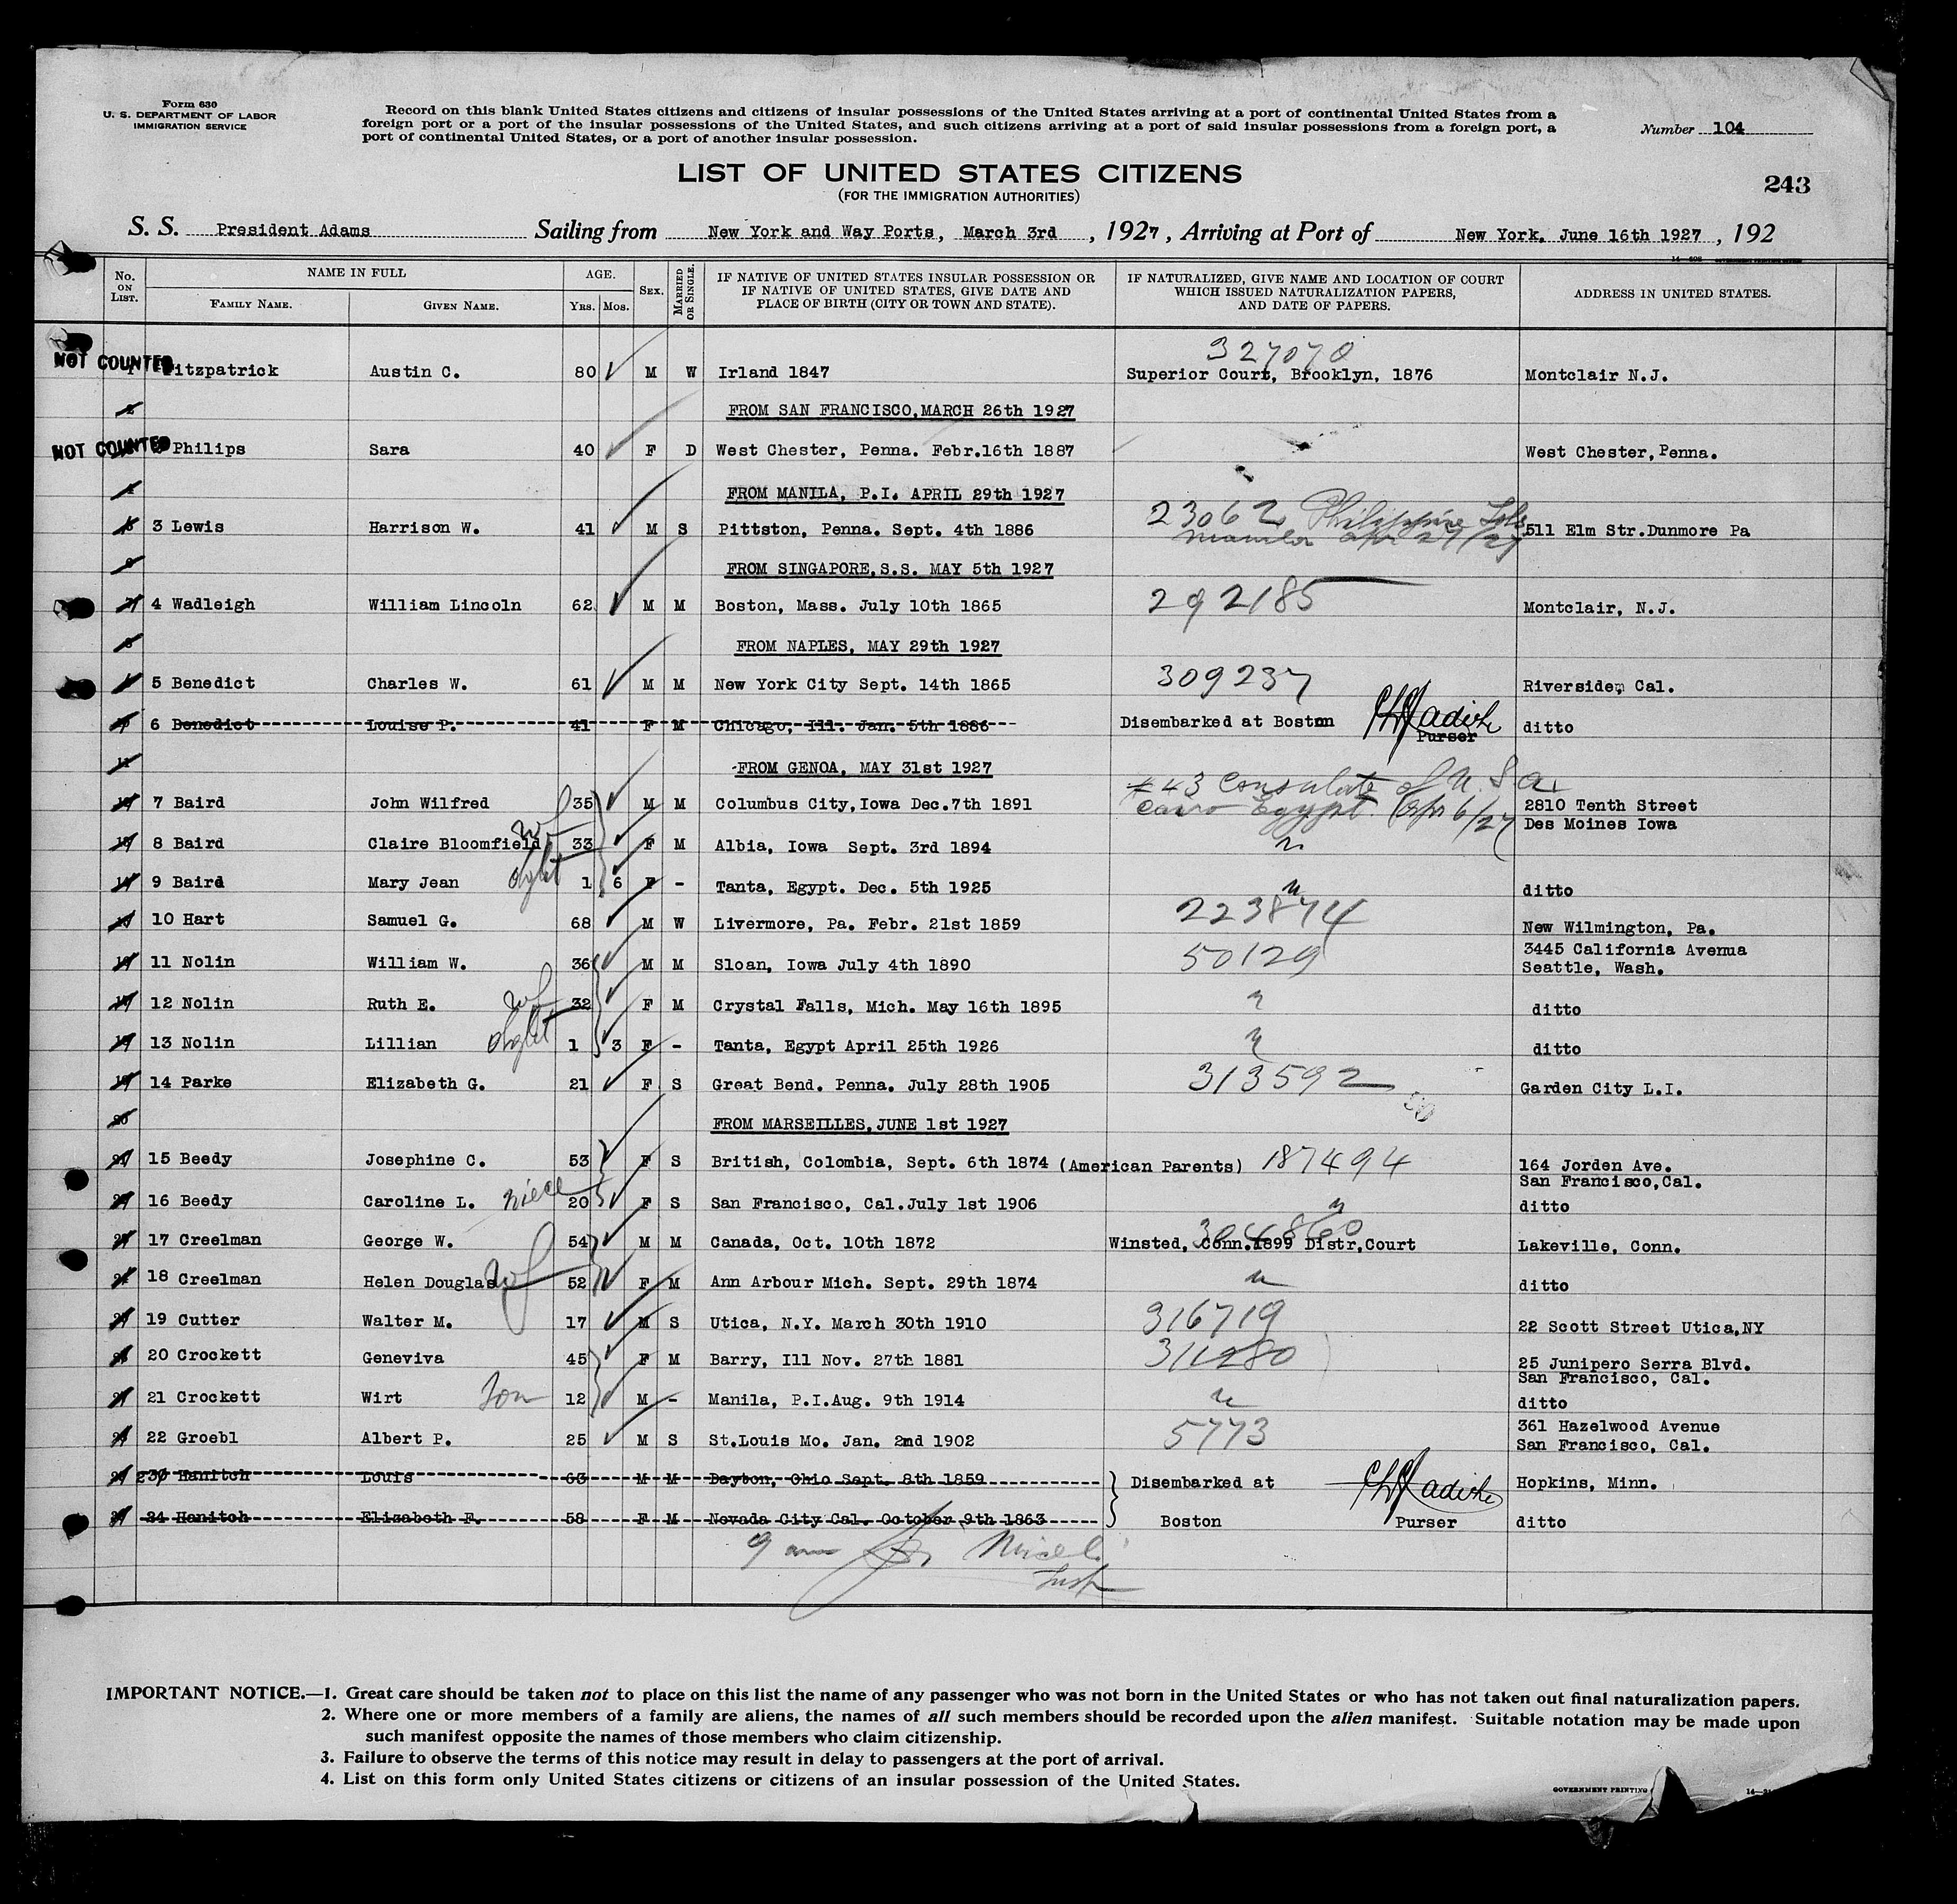 Form 630
U. S. DEPARTMENT OF LABOR
IMMIGRATION SERVICE
Record on this blank United States citizens and citizens of insular possessions of the United States arriving at a port of continental United States from a
foreign port or a port of the insular possessions of the United States, and such citizens arriving at a port of said insular possessions from a foreign port, a
port of continental United States, or a port of another insular possession.
Number 104
LIST OF UNITED STATES CITIZENS
(FOR THE IMMIGRATION AUTHORITIES)
243
S. S. President Adams Sailing from New York and Way Ports, March 3rd, 1927, Arriving at Port of New York, June 16th 1927, 192
No. ON LIST. NAME IN FULL FAMILY NAME. GIVEN NAME. AGE. YRS. MOS. SEX. MARRIED OR SINGLE. IF NATIVE OF UNITED STATES INSULAR POSSESSION OR IF NATIVE OF UNITED STATES, GIVE DATE AND PLACE OF BIRTH (CITY OR TOWN AND STATE). IF NATURALIZED, GIVE NAME AND LOCATION OF COURT WHICH ISSUED NATURALIZATION PAPERS, AND DATE OF PAPERS. ADDRESS IN UNITED STATES.
327070
NOT COUNTED itzpatrick Austin C. 80 M W Irland 1847 Superior Court, Brooklyn, 1876 Montclair N.J.
FROM SAN FRANCISCO, MARCH 26th 1927
NOT COUNTED Philips Sara 40 F D West Chester, Penna. Febr.16th 1887 West Chester, Penna.
FROM MANILA, P.I. APRIL 29th 1927
23062 Philippine Isls
3 Lewis Harrison W. 41 M S Pittston, Penna. Sept. 4th 1886 Manila Apr 27/27 511 Elm Str.Dunmore Pa
FROM SINGAPORE, S.S. MAY 5th 1927
4 Wadleigh William Lincoln 62 M M Boston, Mass. July 10th 1865 292185 Montclair, N.J.
FROM NAPLES, MAY 29th 1927
5 Benedict Charles W. 61 M M New York City Sept. 14th 1865 309237 Riverside, Cal.
6 Benedict Louise P. 41 F M Chicago, Ill. Jan. 5th 1886 Disembarked at Boston Purser ditto
FROM GENOA, MAY 31st 1927
#43 Consulate of U.S.A.
7 Baird John Wilfred 35 M M Columbus City, Iowa Dec.7th 1891 Cairo Egypt. Apr 6/27 2810 Tenth Street
Des Moines Iowa
8 Baird Claire Bloomfield wf 33 F M Albia, Iowa Sept. 3rd 1894 "
9 Baird Mary Jean dght 1 6 F - Tanta, Egypt. Dec. 5th 1925 " ditto
10 Hart Samuel G. 68 M W Livermore, Pa. Febr. 21st 1859 223874 New Wilmington, Pa.
11 Nolin William W. 36 M M Sloan, Iowa July 4th 1890 50129 3445 California Avenua
Seattle, Wash.
12 Nolin Ruth E. wf 32 F M Crystal Falls, Mich. May 16th 1895 " ditto
13 Nolin Lillian dght 1 3 F - Tanta, Egypt April 25th 1926 " ditto
14 Parke Elizabeth G. 21 F S Great Bend. Penna. July 28th 1905 313592 Garden City L.I.
FROM MARSEILLES, JUNE 1st 1927
15 Beedy Josephine C. 53 F S British, Colombia, Sept. 6th 1874 (American Parents) 187494 164 Jorden Ave.
San Francisco, Cal.
16 Beedy Caroline L. niece 20 F S San Francisco, Cal.July 1st 1906 " ditto
17 Creelman George W. 54 M M Canada, Oct. 10th 1872 Winsted, Conn.1899 Distr,Court Lakeville, Conn.
18 Creelman Helen Douglas wf 52 F M Ann Arbour Mich. Sept. 29th 1874 " ditto
19 Cutter Walter M. 17 M S Utica, N.Y. March 30th 1910 316719 22 Scott Street Utica,NY
20 Crockett Geneviva 45 F M Barry, Ill Nov. 27th 1881 311280 25 Junipero Serra Blvd.
San Francisco, Cal.
21 Crockett Wirt son 12 M - Manila, P.I.Aug. 9th 1914 " ditto
22 Groebl Albert P. 25 M S St.Louis Mo. Jan. 2nd 1902 5773 361 Hazelwood Avenue
San Francisco, Cal.
23 Hanitch Louis 63 M M Dayton, Ohio Sept. 8th 1859 Disembarked at Hopkins, Minn.
24 Hanitch Elizabeth F. 58 F M Nevada City Cal. October 9th 1863 Boston Purser ditto
Insp
IMPORTANT NOTICE.—1. Great care should be taken not to place on this list the name of any passenger who was not born in the United States or who has not taken out final naturalization papers.
2. Where one or more members of a family are aliens, the names of all such members should be recorded upon the alien manifest. Suitable notation may be made upon
such manifest opposite the names of those members who claim citizenship.
3. Failure to observe the terms of this notice may result in delay to passengers at the port of arrival.
4. List on this form only United States citizens or citizens of an insular possession of the United States.
GOVERNMENT PRINTING